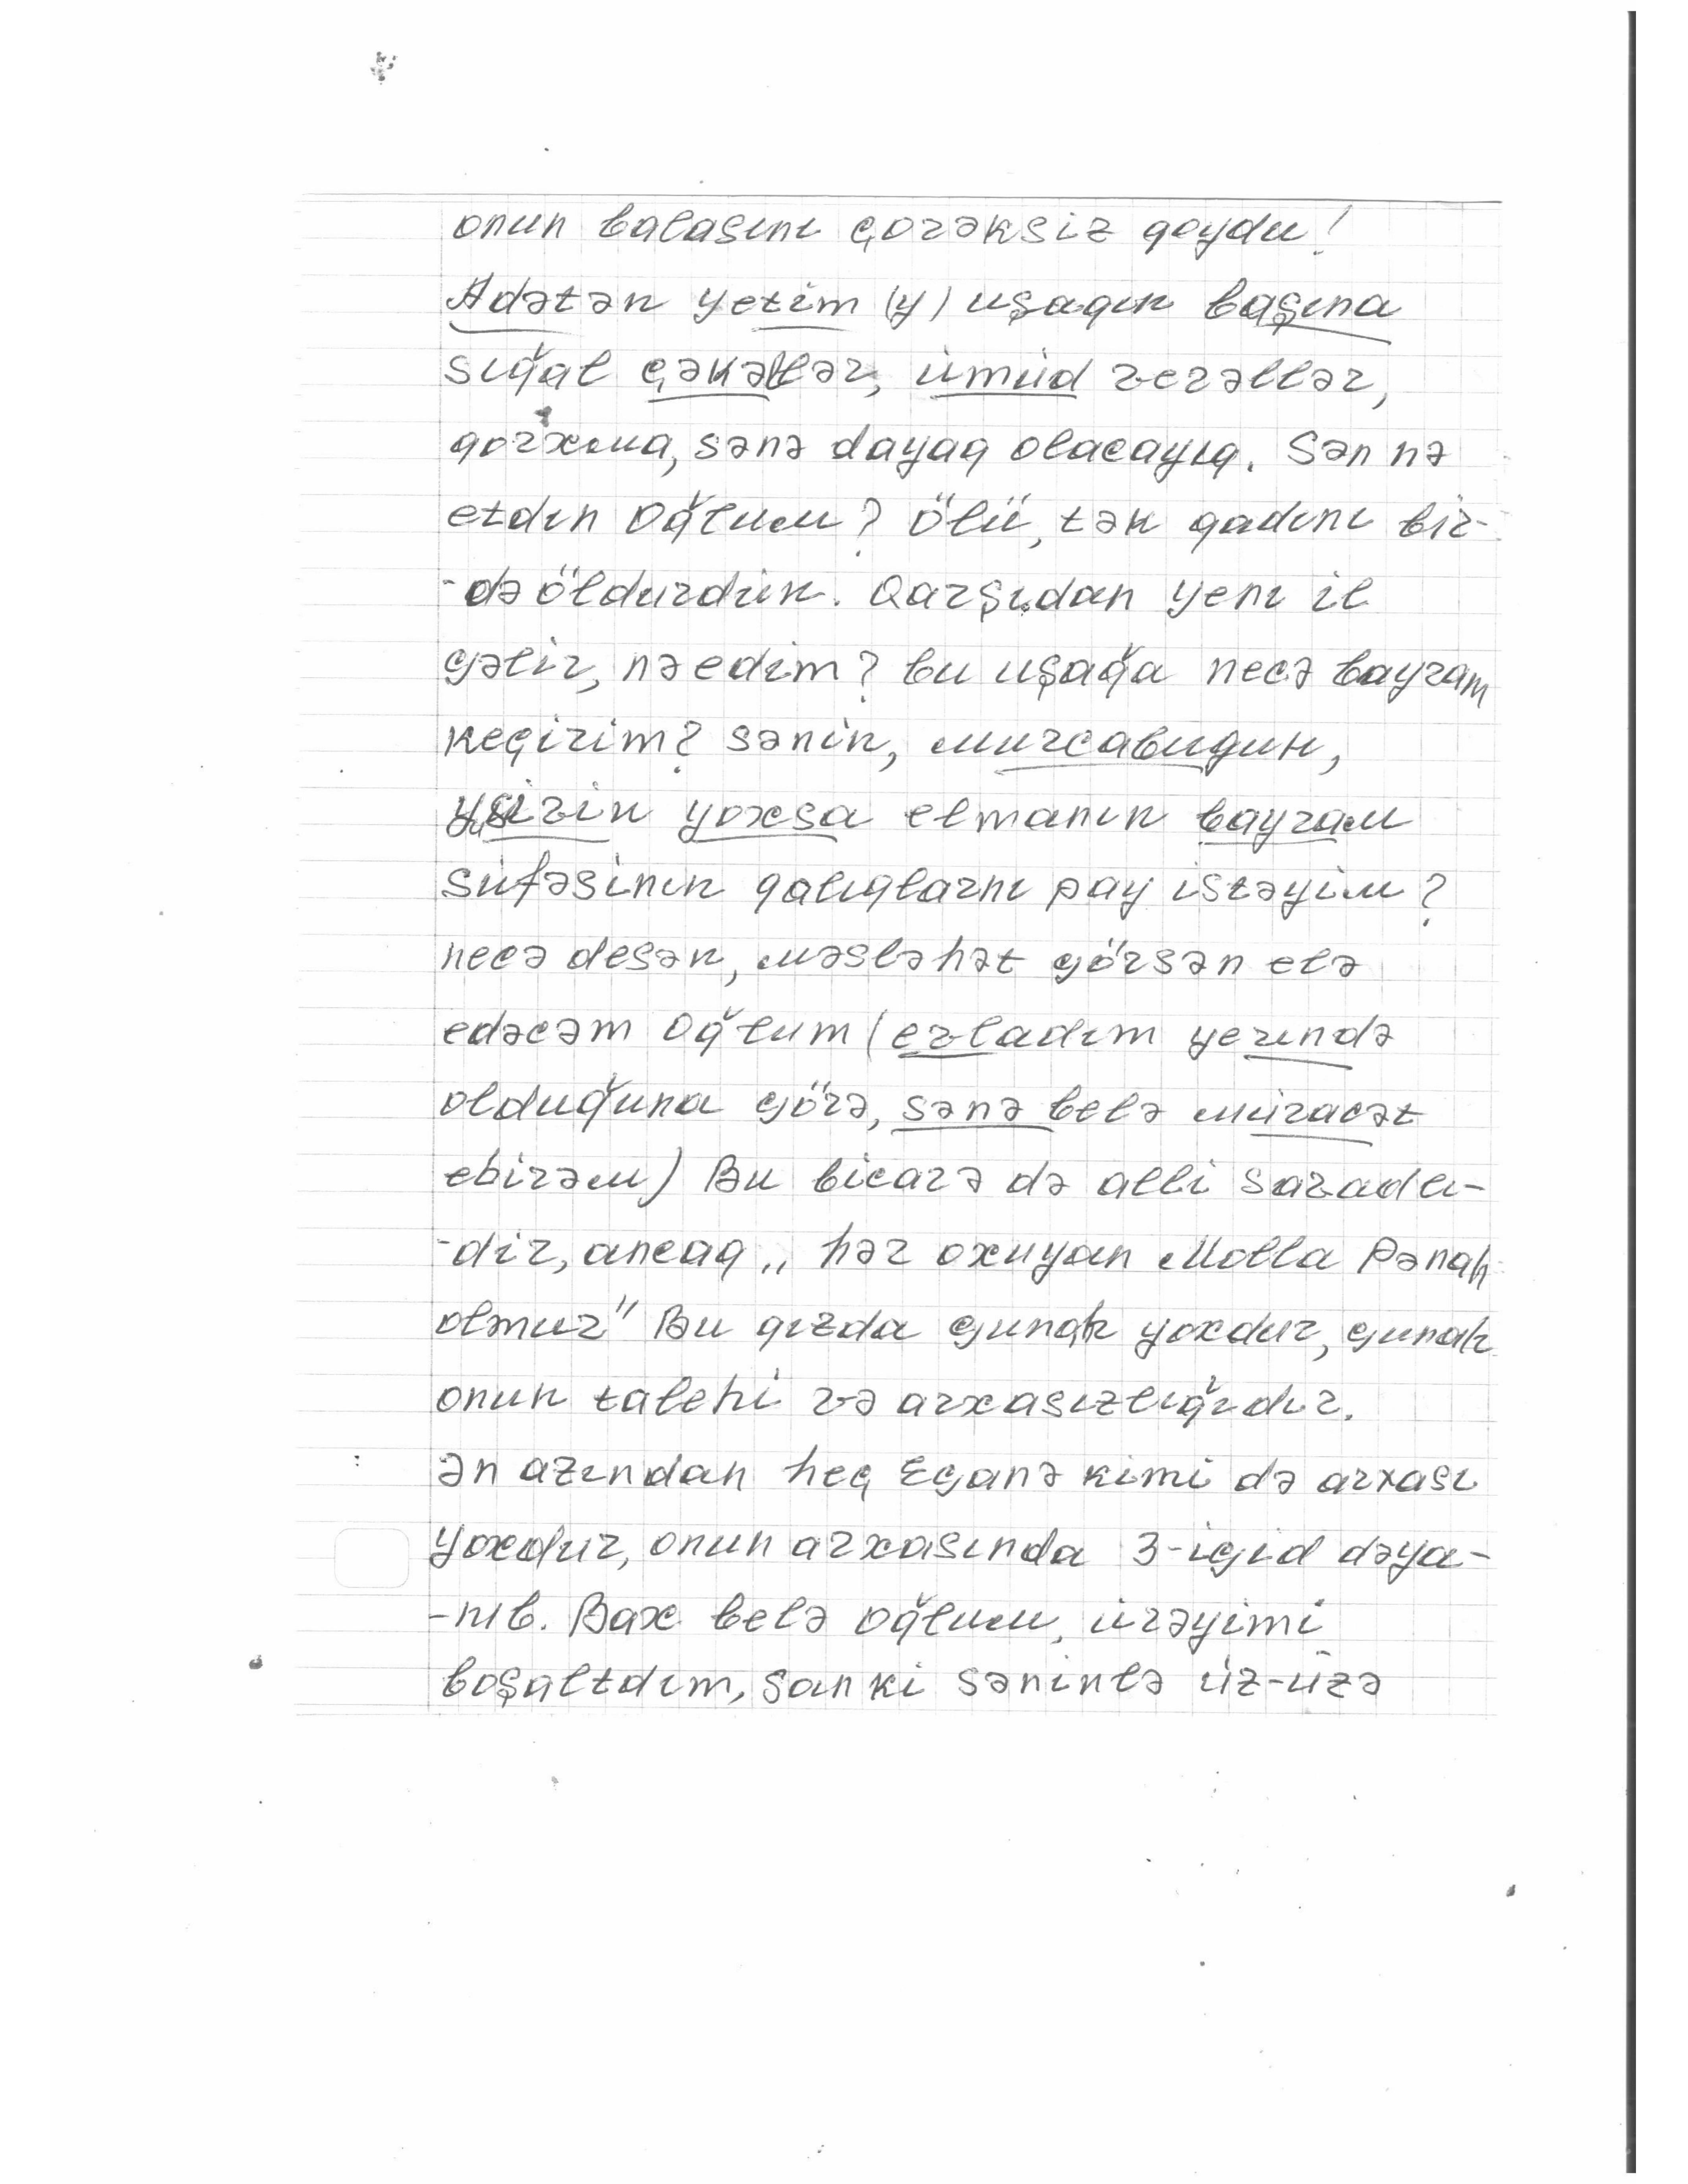 onun balasını çorəksiz qoydu!
Adətən yetim (y) uşaqın başına
sığal çəkəllər, ümüd verəllər,
qorxma, sənə dayaq olacayıq. Sən nə
etdın oğlum? Ölü, tək qadını bir-
-də öldurdün. Qarşıdan yenı il
gəlir, nə edim? bu uşağa necə bayram
keçirim? sənin, mürcabugun,
yoxsa elmanın bayram
süfəsinın qalıqlarnı pay istəyim?
necə desən, məsləhət görsən elə
edəcəm oğlum (evladım yerındə
olduğuna görə, sənə belə müracət
ebirəm) Bu bicarə də alli savadlı-
-dir, ancaq „ hər oxuyan Molla Pənah
olmur" Bu qızda gunah yoxdur, gunah
onun talehi və arxasızlığıdır.
Ən azından heç Eganə kimi də arxası
yoxdur, onun arxasında 3-igid dəya-
-nıb. Bax belə oğlum, ürəyimi
boşaltdım, sanki səninlə üz-üzə